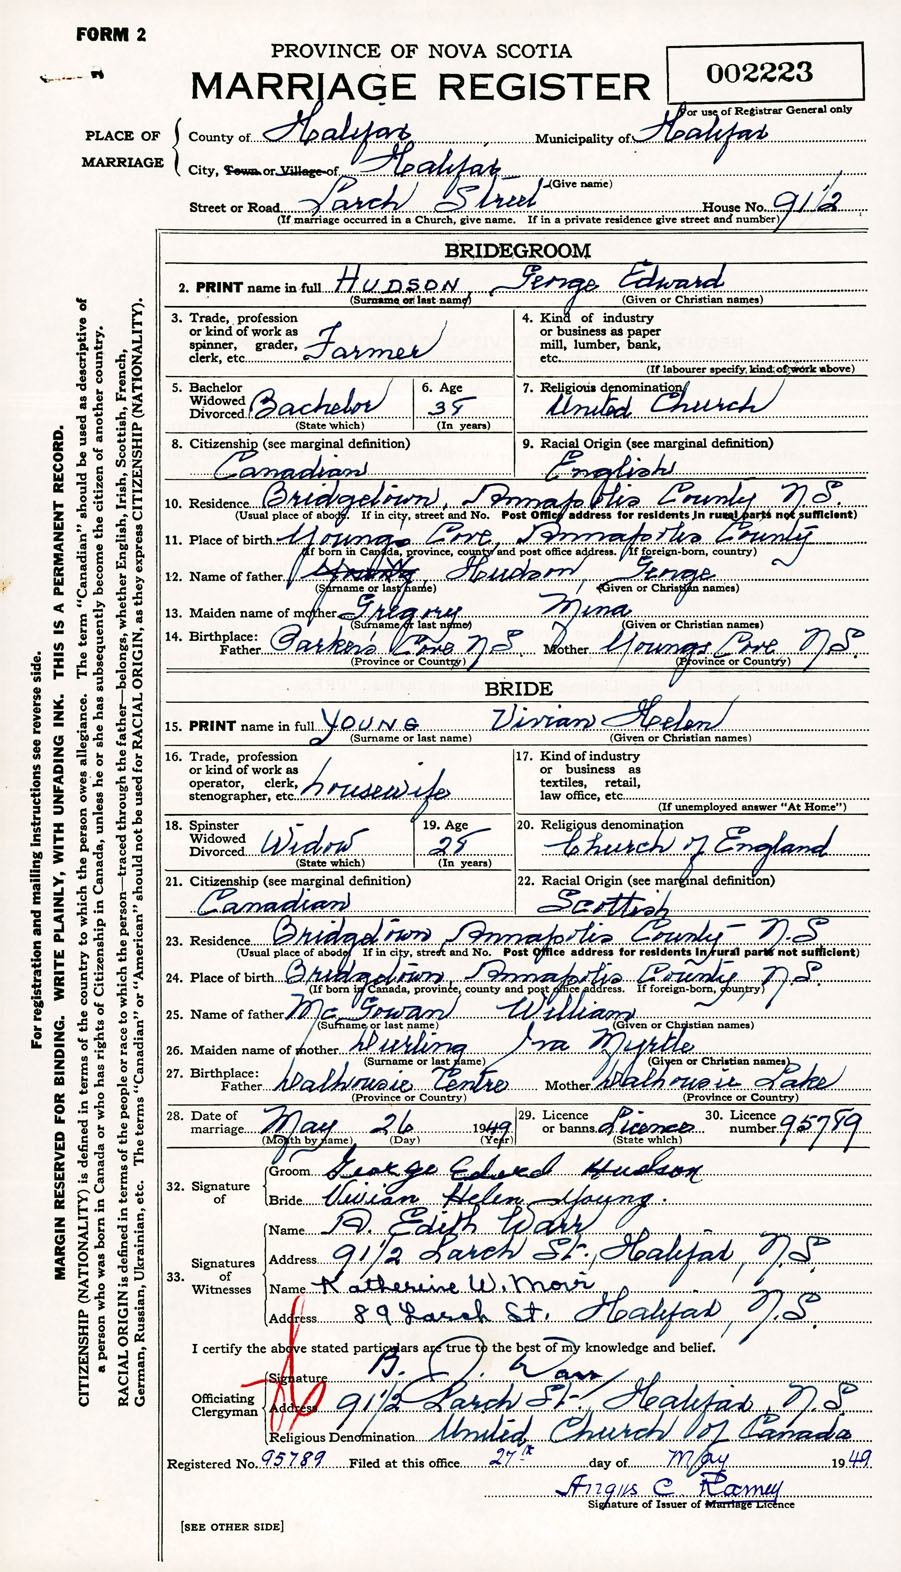 FORM 2
PROVINCE OF NOVA SCOTIA
MARRIAGE REGISTER
002223
For use of Registrar General only
PLACE OF MARRIAGE
County of Halifax Municipality of Halifax
City, Town or Village of Halifax
(Give name)
Street or Road Larch Street House No. 91 1/2
(If marriage occurred in a Church, give name. If in a private residence give street and number)
BRIDEGROOM
2. PRINT name in full HUDSON, George Edward
(Surname or last name) (Given or Christian names)
3. Trade, profession or kind of work as spinner, grader, clerk, etc. Farmer
4. Kind of industry or business as paper mill, lumber, bank, etc.
(If labourer specify, kind of work above)
5. Bachelor Widowed Divorced Bachelor
(State which)
6. Age 35
(In years)
7. Religious denomination United Church
8. Citizenship (see marginal definition) Canadian
9. Racial Origin (see marginal definition) English
10. Residence Bridgetown, Annapolis County N.S.
(Usual place of abode. If in city, street and No. Post Office address for residents in rural parts not sufficient)
11. Place of birth Youngs Cove, Annapolis County
(If born in Canada, province, county and post office address. If foreign-born, country)
12. Name of father Hudson, George
(Surname or last name) (Given or Christian names)
13. Maiden name of mother Gregory Mina
(Surname or last name) (Given or Christian names)
14. Birthplace: Father Parker's Cove N.S. Mother Youngs Cove N.S.
(Province or Country) (Province or Country)
BRIDE
15. PRINT name in full YOUNG Vivian Helen
(Surname or last name) (Given or Christian names)
16. Trade, profession or kind of work as operator, clerk, stenographer, etc. housewife
17. Kind of industry or business as textiles, retail, law office, etc.
(If unemployed answer "At Home")
18. Spinster Widowed Divorced Widow
(State which)
19. Age 25
(In years)
20. Religious denomination Church of England
21. Citizenship (see marginal definition) Canadian
22. Racial Origin (see marginal definition) Scottish
23. Residence Bridgetown, Annapolis County N.S.
(Usual place of abode. If in city, street and No. Post Office address for residents in rural parts not sufficient)
24. Place of birth Bridgetown, Annapolis County N.S.
(If born in Canada, province, county and post office address. If foreign-born, country)
25. Name of father McGowan William
(Surname or last name) (Given or Christian names)
26. Maiden name of mother Durling Iva Myrtle
(Surname or last name) (Given or Christian names)
27. Birthplace: Father Dalhousie Centre Mother Dalhousie Lake
(Province or Country) (Province or Country)
28. Date of marriage May 26 1949
(Month by name) (Day) (Year)
29. Licence or banns Licence
(State which)
30. Licence number 95789
32. Signature of
Groom George Edward Hudson
Bride Vivian Helen Young.
33. Signatures of Witnesses
Name A. Edith Warr
Address 91 1/2 Larch St., Halifax, N.S.
Name Katherine W. Moir
Address 89 Larch St. Halifax, N.S.
I certify the above stated particulars are true to the best of my knowledge and belief.
Officiating Clergyman
Signature B. J. Warr
Address 91 1/2 Larch St. Halifax, N.S.
Religious Denomination United Church of Canada
Registered No. 95789 Filed at this office 27th day of May 1949
Angus C
Signature of Issuer of Marriage Licence
[SEE OTHER SIDE]
For registration and mailing instructions see reverse side.
MARGIN RESERVED FOR BINDING. WRITE PLAINLY, WITH UNFADING INK. THIS IS A PERMANENT RECORD.
CITIZENSHIP (NATIONALITY) is defined in terms of the country to which the person owes allegiance. The term "Canadian" should be used as descriptive of
a person who was born in Canada or who has rights of Citizenship in Canada, unless he or she has subsequently become the citizen of another country.
RACIAL ORIGIN is defined in terms of the people or race to which the person—traced through the father—belongs, whether English, Irish, Scottish, French,
German, Russian, Ukrainian, etc. The terms "Canadian" or "American" should not be used for RACIAL ORIGIN, as they express CITIZENSHIP (NATIONALITY).